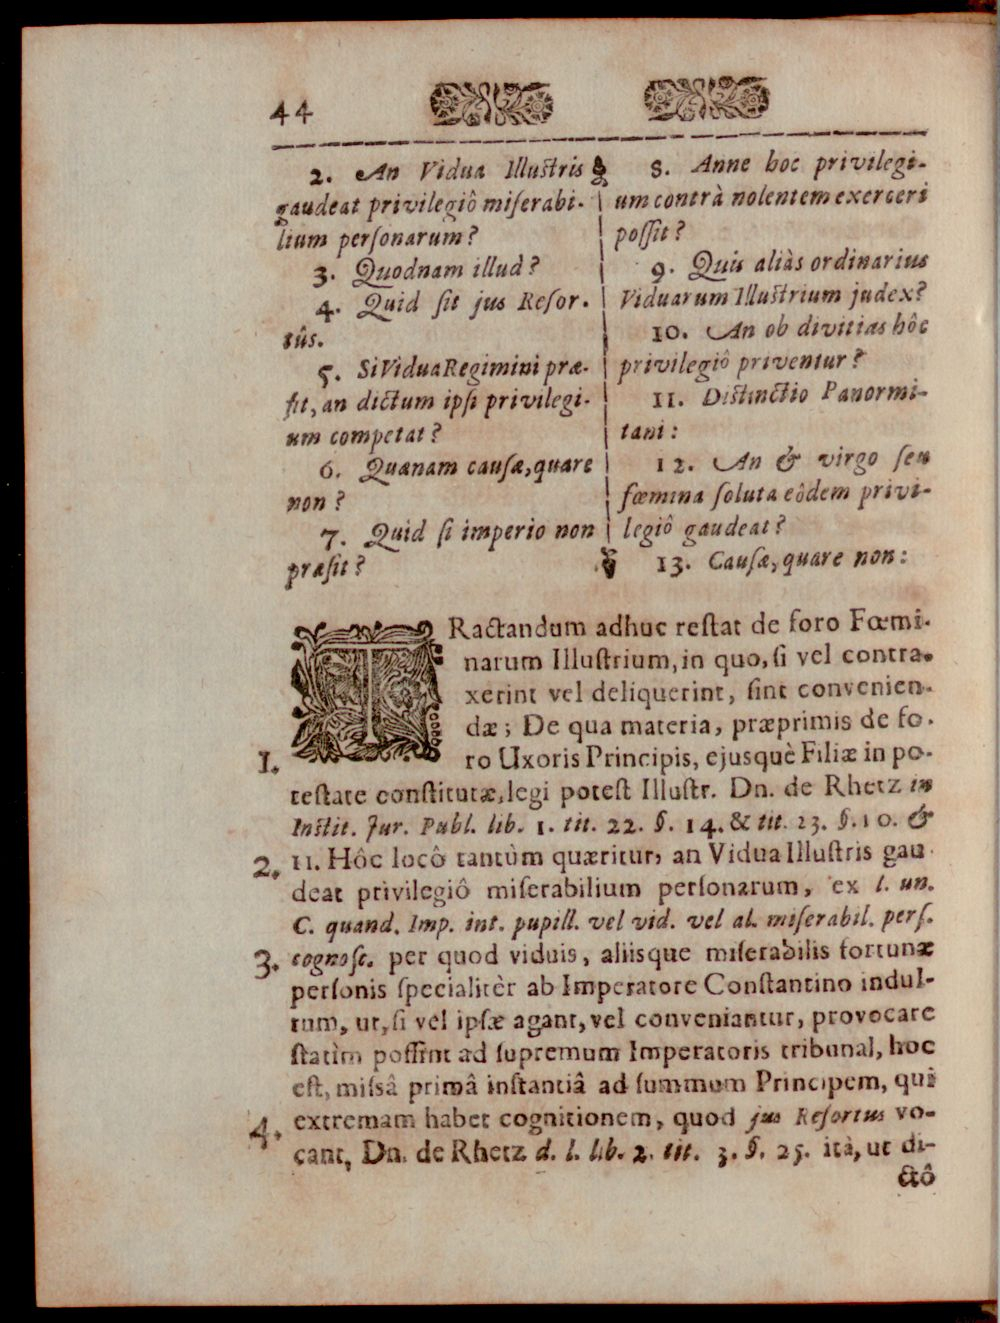 44
2. An Vidua Illustris
gaudeat privilegiô miſerabi-
lium perſonarum?
3. Quodnam illud?
4. Quid ſit jus Reſor-
tûs.
5. Si Vidua Regimini præ-
ſit, an dictum ipſi privilegi-
um competat?
6. Quænam cauſæ, quare
non?
7. Quid ſi imperio non
præſit?
8. Anne hoc privilegi-
um contrà nolentem exerceri
poſſit?
9. Quis aliàs ordinarius
Viduarum Illustrium judex?
10. An ob divitias hôc
privilegiô priventur?
11. Distinctio Panormi-
tani:
12. An & virgo ſeu
fœmina ſoluta eôdem privi-
legiô gaudeat?
13. Cauſæ, quare non:
TRactandum adhuc reſtat de foro Fœmi-
narum Illuſtrium, in quo, ſi vel contra-
xerint vel deliquerint, ſint convenien-
dæ; De qua materia, præprimis de fo-
1. ro Uxoris Principis, ejusquè Filiæ in po-
teſtate conſtitutæ, legi poteſt Illuſtr. Dn. de Rhetz in
Inſtit. Jur. Publ. lib. 1. tit. 22. §. 14. & tit. 23. §. 10. &
2. 11. Hôc locô tantùm quæritur, an Vidua Illuſtris gau-
deat privilegiô miſerabilium perſonarum, ex l. un.
C. quand. Imp. int. pupill. vel vid. vel al. miſerabil. perſ.
3. cognoſc. per quod viduis, aliisque miſerabilis fortunæ
perſonis ſpecialitèr ab Imperatore Conſtantino indul-
tum, ut, ſi vel ipſæ agant, vel conveniantur, provocare
ſtatìm poſſint ad ſupremum Imperatoris tribunal, hoc
eſt, miſsâ primâ inſtantiâ ad ſummum Principem, qui
4. extremam habet cognitionem, quod jus Reſortus vo-
cant, Dn. de Rhetz d. l. lib. 2. tit. 3. §. 25. ità, ut di-
ctô